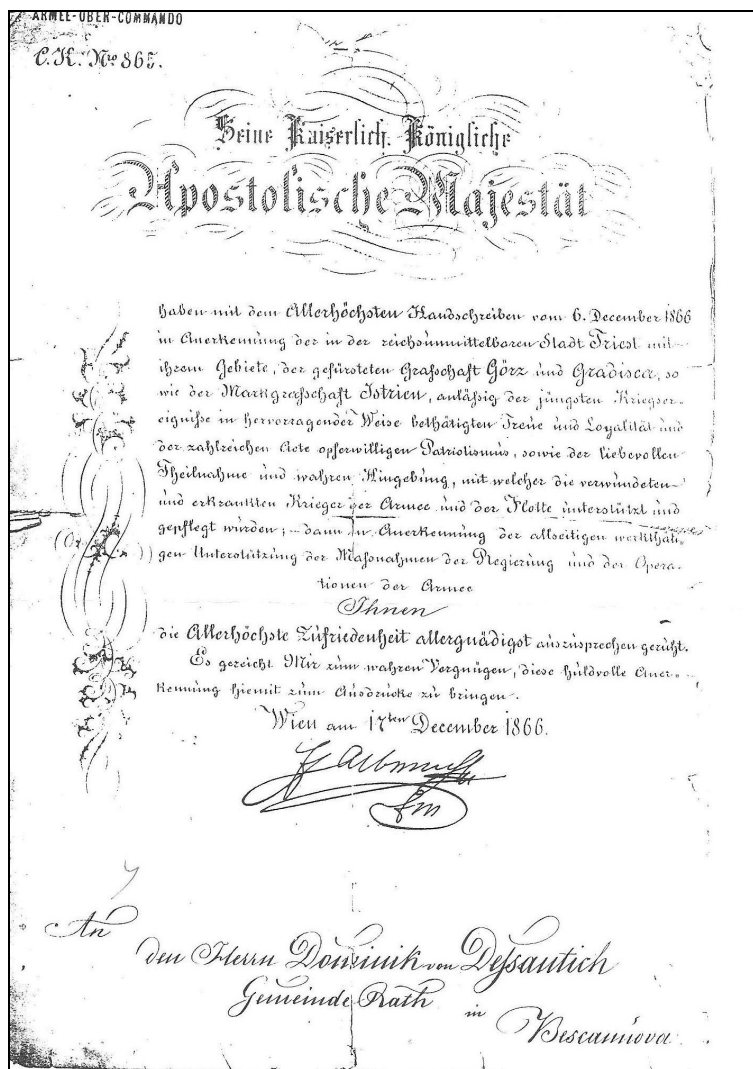 ARMEE-OBER-COMMANDO
C.K. No 865.
Seine Kaiserlich. Königliche
Apostolische Majestät
haben mit dem Allerhöchsten Handschreiben vom 6. December 1866
in Anerkennung der in der reichsunmittelbaren Stadt Triest mit
ihrem Gebiete, der gefürsteten Grafschaft Görz und Gradisca, so
wie der Markgrafschaft Istrien, anläßig der jüngsten Kriegser-
eigniße in hervorragender Weise bethätigten Treue und Loyalität und
der zahlreichen Acte opferwilligen Patriotismus, sowie der liebevollen
Theilnahme und wahren Hingebung, mit welcher die verwundeten
und erkrankten Krieger der Armee und der Flotte unterstützt und
gepflegt wurden; dann in Anerkennung der allseitigen werkthäti-
gen Unterstützung der Maßnahmen der Regierung und der Opera-
tionen der Armee
Ihnen
die Allerhöchste Zufriedenheit allergnädigst auszusprechen geruht.
Es gereicht Mir zum wahren Vergnügen, diese huldvolle Aner-
kennung hiemit zum Ausdrucke zu bringen.
Wien am 17ten December 1866.
EAlbrecht
FM
An
den Herrn Dominik von Deßantich
Gemeinde Rath
in
Bescanuova